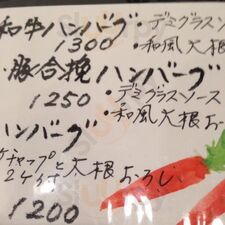 和牛ハンバーグ
・デミグラスソース
1300
・和風大根
豚合挽ハンバーグ
1250
・デミグラスソース
・和風大根おろ
ハンバーグ
ケチャップと大根おろし
1200